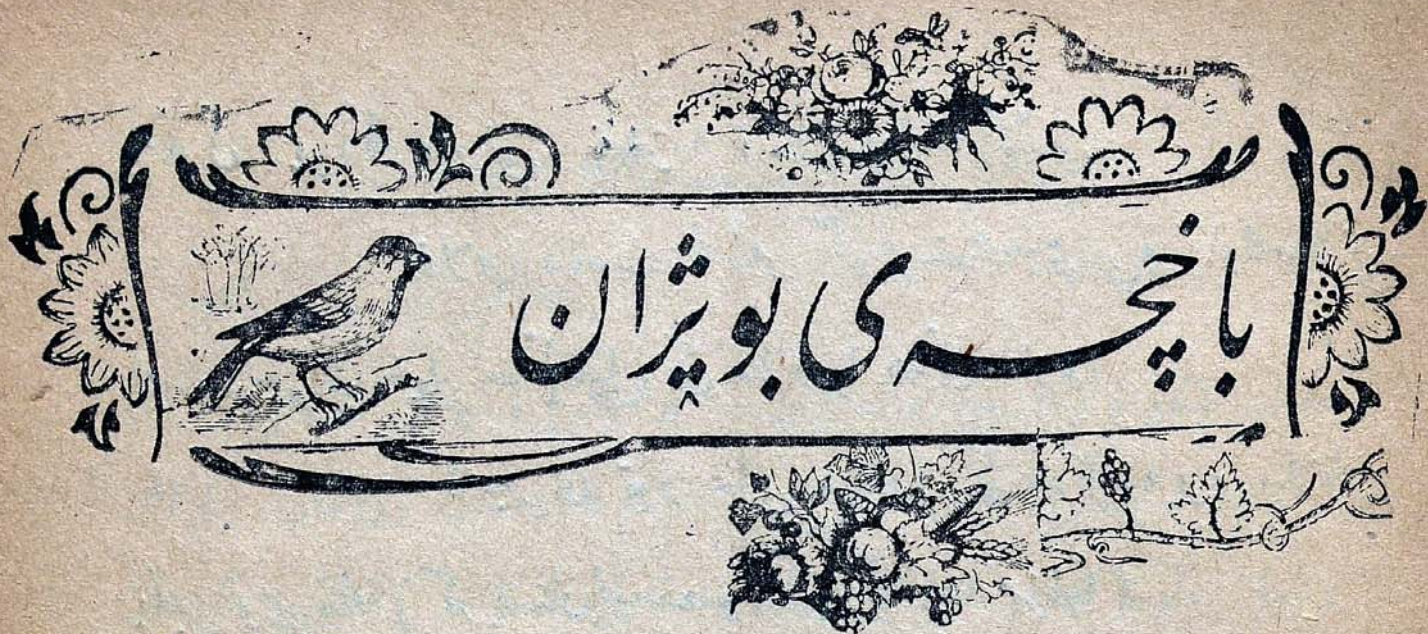 باخچه ی بویژان